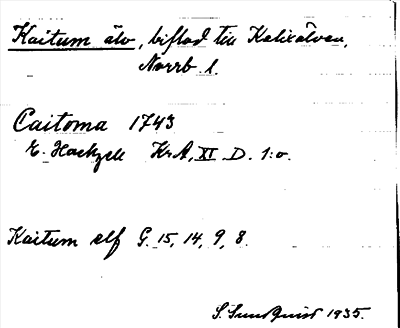 Kaitum älv, biflod till Kalixälven,
Norrb l.
Caitoma 1743
E. Hackzell KrA, XI D. 1:o.
Kaitum elf G. 15, 14, 9, 8.
S. Sundquist 1935.